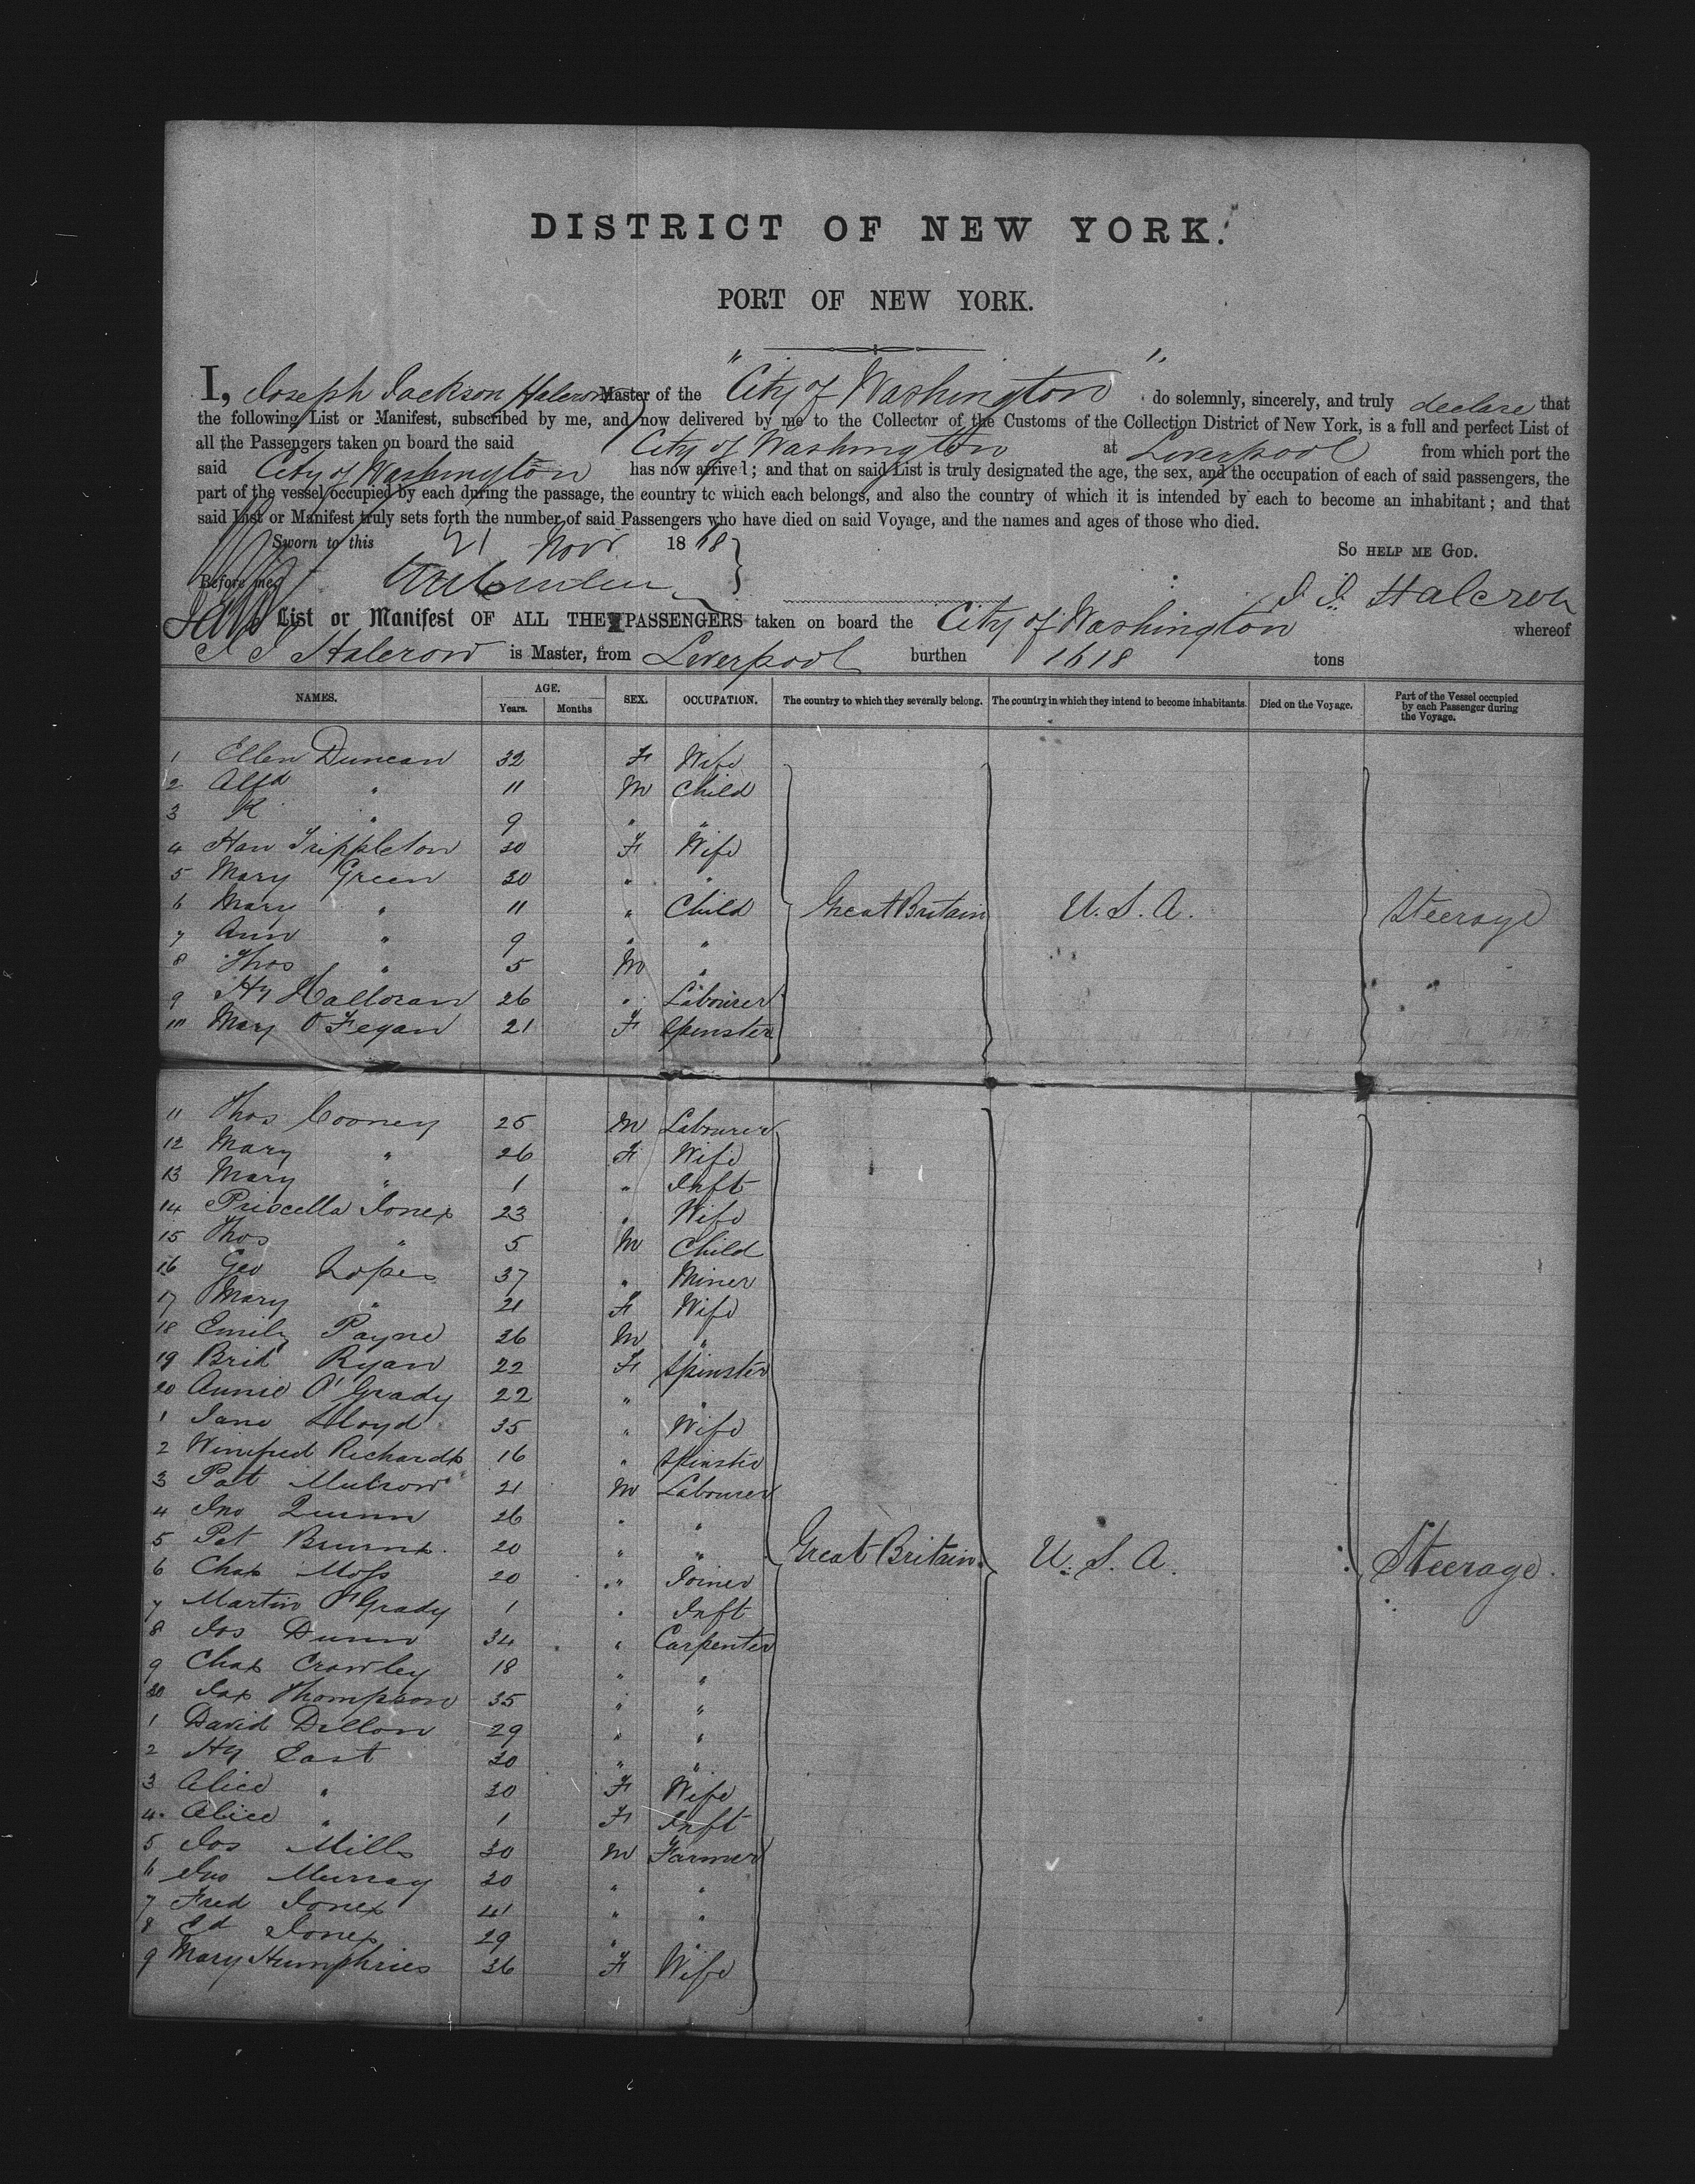 DISTRICT OF NEW YORK.
PORT OF NEW YORK.
I, Joseph Jackson Halcrow Master of the "City of Washington" do solemnly, sincerely, and truly declare that
the following List or Manifest, subscribed by me, and now delivered by me to the Collector of the Customs of the Collection District of New York, is a full and perfect List of
all the Passengers taken on board the said City of Washington at Liverpool from which port the
said City of Washington has now arrived; and that on said List is truly designated the age, the sex, and the occupation of each of said passengers, the
part of the vessel occupied by each during the passage, the country to which each belongs, and also the country of which it is intended by each to become an inhabitant; and that
said List or Manifest truly sets forth the number of said Passengers who have died on said Voyage, and the names and ages of those who died.
Sworn to this 21 Novr 1868 So HELP ME GOD.
Before me, J J Halcrow
List or Manifest OF ALL THE PASSENGERS taken on board the City of Washington whereof
J J Halcrow is Master, from Liverpool burthen 1618 tons
NAMES. AGE. Years. Months SEX. OCCUPATION. The country to which they severally belong. The country in which they intend to become inhabitants. Died on the Voyage. Part of the Vessel occupied by each Passenger during the Voyage.
1 Ellen Duncan 32 F Wife
2 Alfd " 11 M Child
3 K " 9 " "
4 Han Trippleton 30 F Wife
5 Mary Green 30 " "
6 Mary " 11 " Child Great Britain U.S.A. Steerage
7 Ann " 9 " "
8 Thos " 5 M "
9 Hy Halloran 26 " Labourer
10 Mary O'Fegan 21 F Spinster
11 Thos Cooney 25 M Labourer
12 Mary " 26 F Wife
13 Mary " 1 " Inft
14 Priscella Jones 23 " Wife
15 Thos " 5 M Child
16 Geo Lopes 37 " Miner
17 Mary " 21 F Wife
18 Emily Payne 36 M "
19 Brid Ryan 22 F Spinster
20 Annie O'Grady 22 " "
1 Jane Lloyd 35 " Wife
2 Winifred Richards 16 " Spinster
3 Pat Mulrow 21 M Labourer
4 Jno Quinn 26 " "
5 Pat Burns 20 " " Great Britain U.S.A. Steerage.
6 Chas Moss 20 " Joiner
7 Martin O'Grady 1 " Inft
8 Jos Dunn 34 " Carpenter
9 Chas Crowley 18 " "
30 Jas Thompson 35 " "
1 David Dillon 29 " "
2 Hy East 30 " "
3 Alice " 30 F Wife
4 Alice " 1 F Inft
5 Jos Mills 30 M Farmer
6 Jno Murray 30 " "
7 Fred Jones 41 " "
8 Ed Jones 29 " "
9 Mary Humphries 36 F Wife